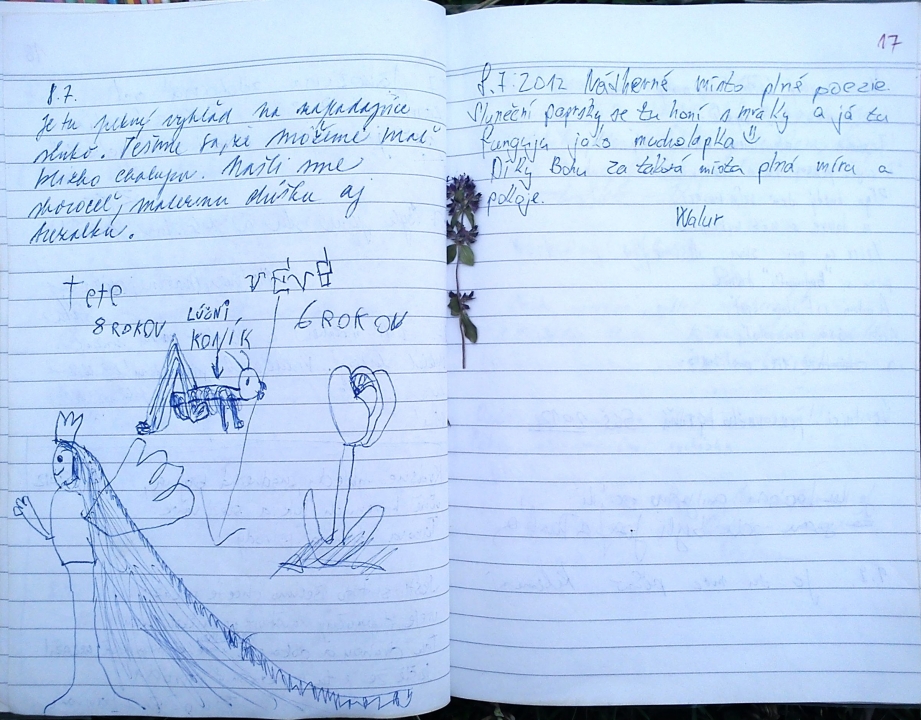 8.7.
Je tu pekný výhľad na zapadajúce
slnko. Tešíme sa, že môžeme mať
blízko chalupu. Našli sme
skorocel, materinu dúšku aj
Tete
8 ROKOV
LÚČNÍ
KONÍK
6 ROKOV
17
8.7.2012 Nádherné místo plné poezie.
Sluneční paprsky se tu honí s mraky a já tu
funguju jako mucholapka
Díky Bohu za taková místa plná míru a
pokoje.